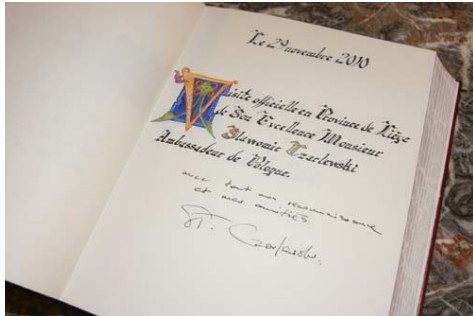 Le 29 novembre 2010
Visite officielle en Province de Liège
de Son Excellence Monsieur
Slawomir Czarlewski
Ambassadeur de Pologne.
avec tout ma reconnaissance
et mes amitiés